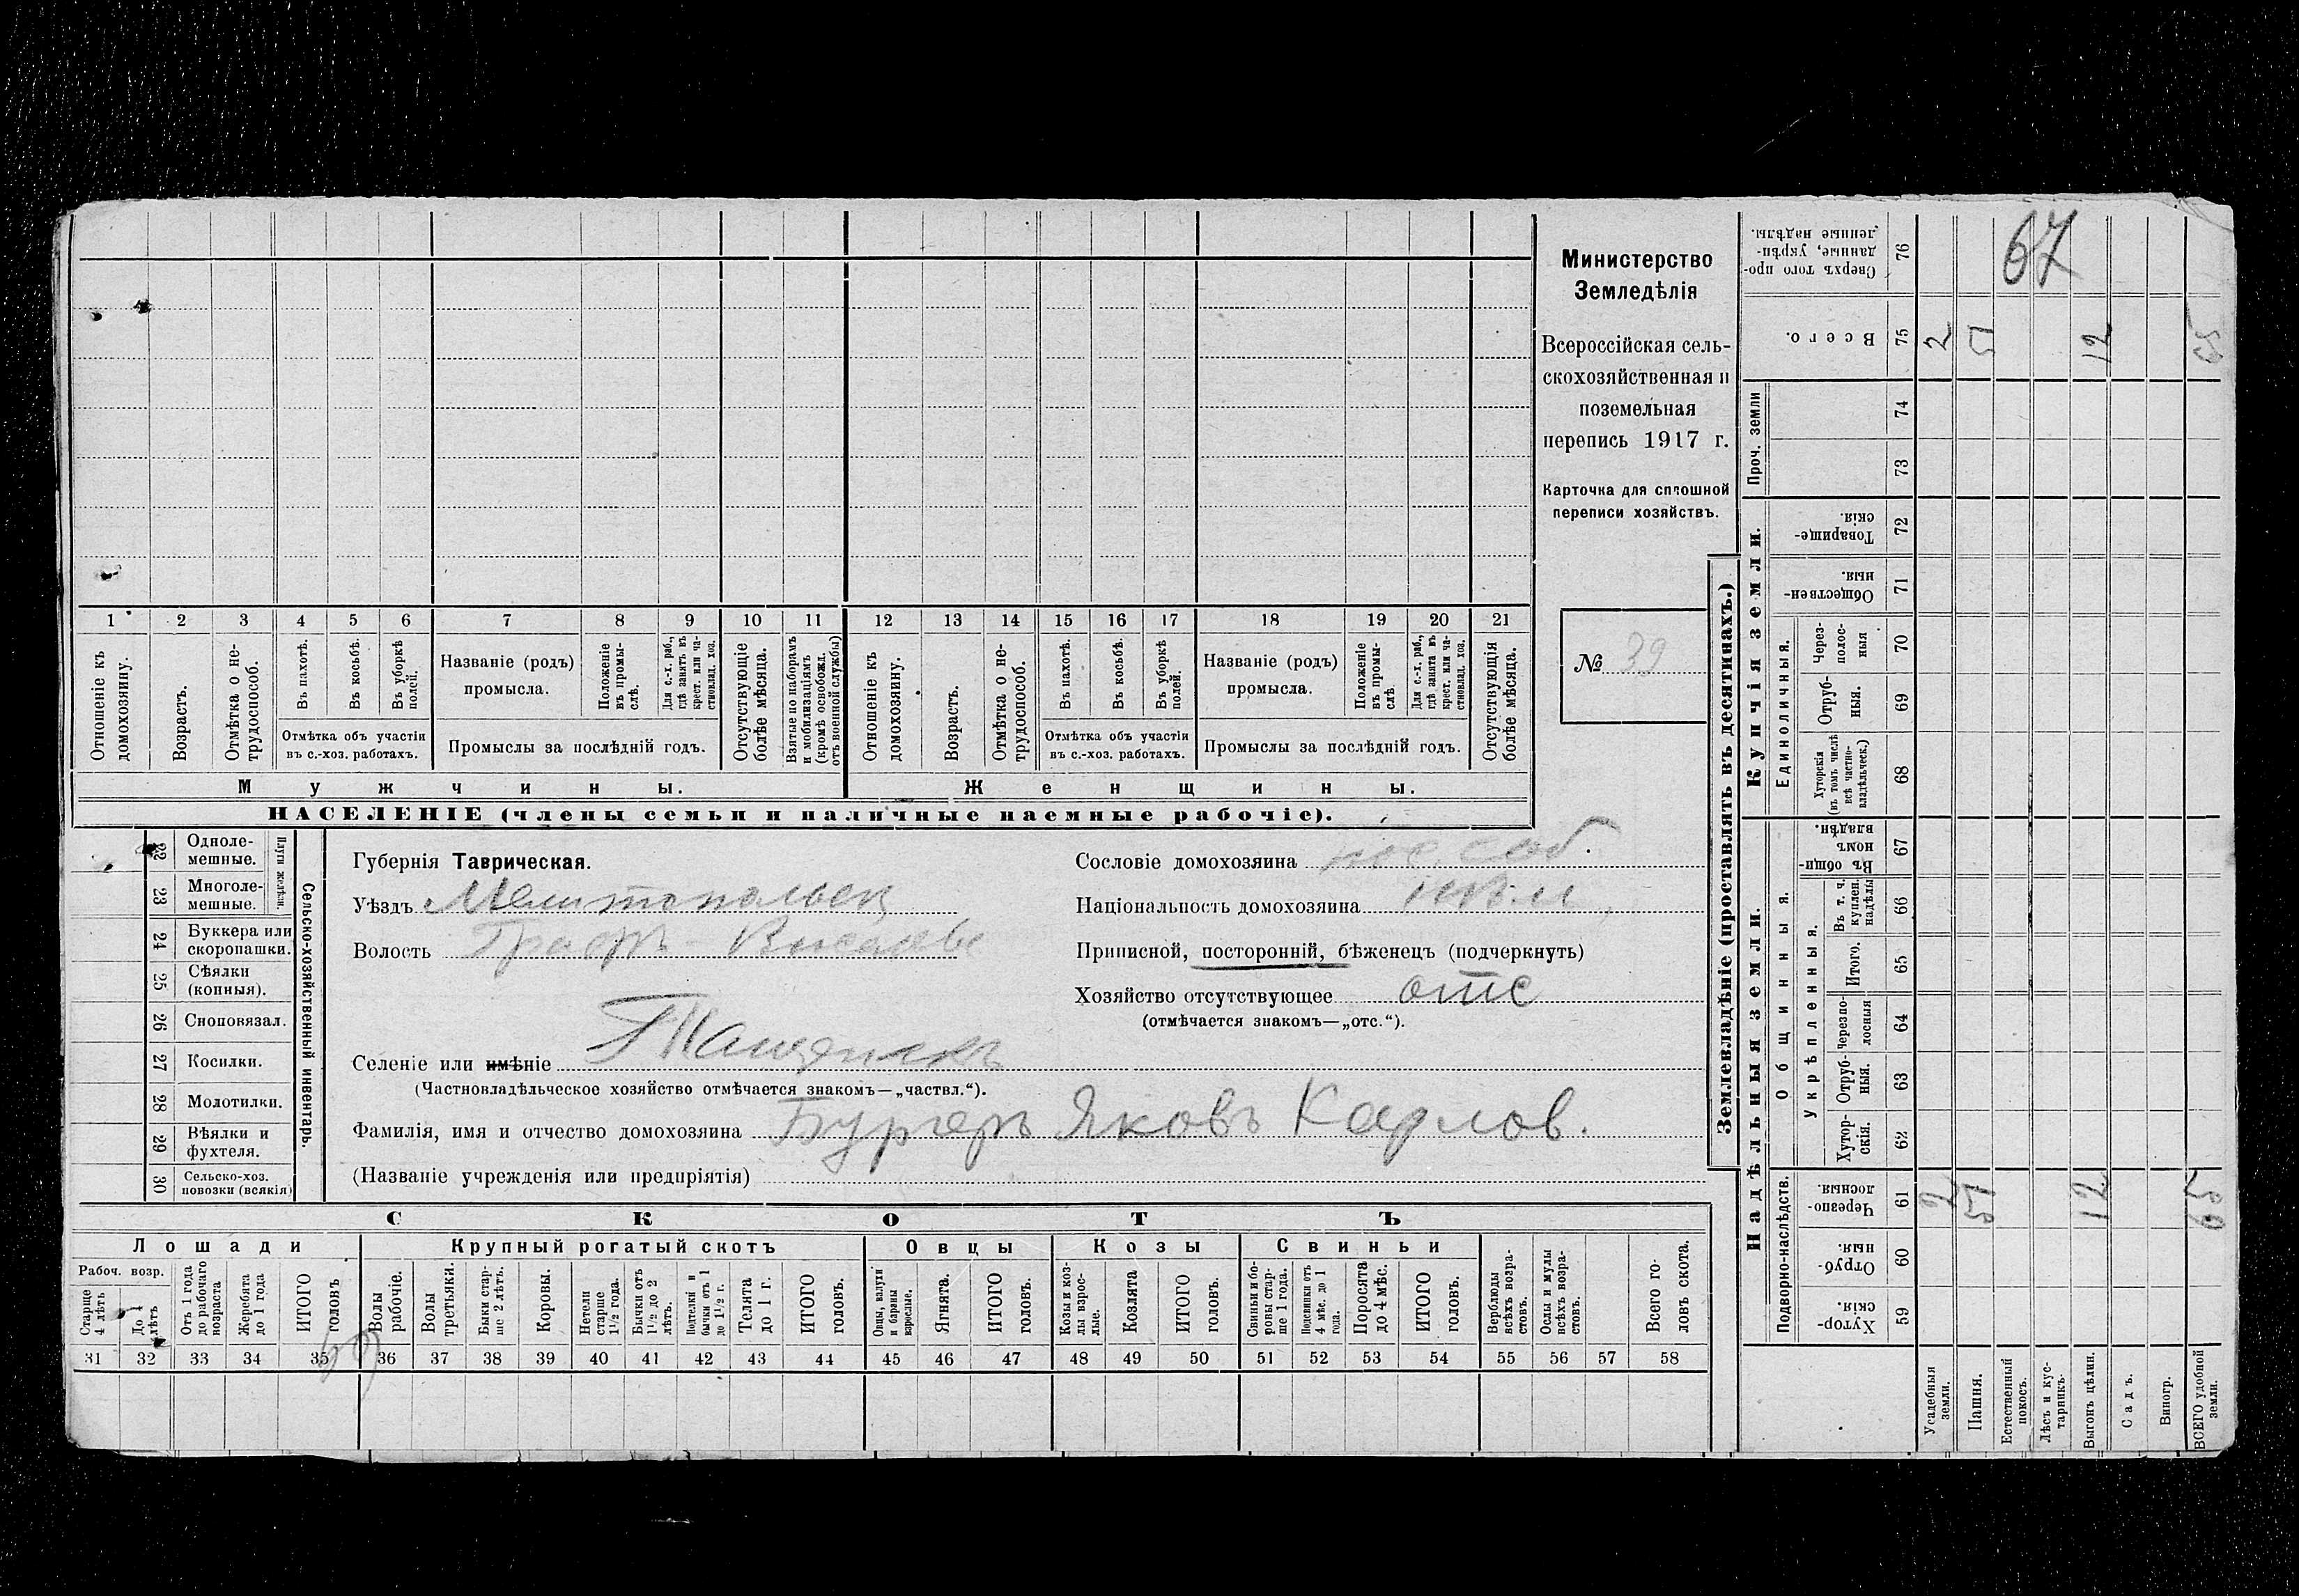 1 2 3 4 5 6 7 8 9 10 11 12 13 14 15 16 17 18 19 20 21
Отношеніе къ домохозяину.
Возрастъ.
Отмѣтка о не-
трудоспособ.
Въ пахотѣ.
Въ косьбѣ.
Въ уборкѣ полей.
Отмѣтка объ участіи
въ с.-хоз. работахъ.
Названіе (родъ)
промысла.
Положеніе
въ промы-
слѣ.
Для с.-х. раб.,
гдѣ занятъ въ
крест. или ча-
стновлад. хоз.
Промыслы за послѣдній годъ.
Отсутствующіе
болѣе мѣсяца.
Взятые по наборамъ
и мобилизаціямъ
(кромѣ освобожд.
отъ военной службы)
Отношеніе къ
домохозяину.
Возрастъ.
Отмѣтка о не-
трудоспособ.
Въ пахотѣ.
Въ косьбѣ.
Въ уборкѣ
полей.
Отмѣтка объ участіи
въ с.-хоз. работахъ.
Названіе (родъ)
промысла.
Положеніе
въ промы-
слѣ.
Для с.-х. раб.,
гдѣ занята въ
крест. или ча-
стновлад. хоз.
Промыслы за послѣдній годъ.
Отсутствующія
болѣе мѣсяца.
Мужчины.
Женщины.
НАСЕЛЕНІЕ (члены семьи и наличные наемные рабочіе).
Министерство
Земледѣлія
Всероссійская сель-
скохозяйственная и
поземельная
перепись 1917 г.
Карточка для сплошной
переписи хозяйствъ.
№ 39
22 Одноле-
мешные.
23 Многоле-
мешные.
Плуги желѣзн.
24 Буккера или
скоропашки.
25 Сѣялки
(конныя).
26 Сноповязал.
27 Косилки.
28 Молотилки.
29 Вѣялки и
фухтеля.
30 Сельско-хоз.
повозки (всякія)
Сельско-хозяйственный инвентарь.
Губернія Таврическая.
Уѣздъ Мелитопольск
Волость
Селеніе или имѣніе
(Частновладѣльческое хозяйство отмѣчается знакомъ—„частвл.“).
Фамилія, имя и отчество домохозяина Бургеръ Яковъ Карлов.
(Названіе учрежденія или предпріятія)
Сословіе домохозяина пос. соб.
Національность домохозяина
Приписной, посторонній, бѣженецъ (подчеркнуть)
Хозяйство отсутствующее отс
(отмѣчается знакомъ—„отс.“).
СКОТЪ
Лошади
Крупный рогатый скотъ
Овцы
Козы
Свиньи
Рабоч. возр.
Старше
4 лѣтъ
До 4
лѣтъ
Отъ 1 года
до рабочаго
возраста
Жеребята
до 1 года
ИТОГО
головъ
Волы
рабочіе.
Волы
третьяки.
Быки стар-
ше 2 лѣтъ.
Коровы.
Нетели
старше
1½ года.
Бычки отъ
1½ до 2
лѣтъ.
Подтелки и
бычки отъ 1
до 1½ г.
Телята
до 1 г.
ИТОГО
головъ.
Овцы, валухи
и бараны
взрослые.
Ягнята.
ИТОГО
головъ.
Козы и коз-
лы взрос-
лые.
Козлята
ИТОГО
головъ.
Свиньи и бо-
ровы стар-
ше 1 года.
Подсвинки отъ
4 мѣс. до 1
года.
Поросята
до 4 мѣс.
ИТОГО
головъ.
Верблюды
всѣхъ возра-
стовъ.
Ослы и мулы
всѣхъ возра-
стовъ.
Всего го-
ловъ скота.
31 32 33 34 35 36 37 38 39 40 41 42 43 44 45 46 47 48 49 50 51 52 53 54 55 56 57 58
Землевладѣніе (проставлять въ десятинахъ.)
Надѣльныя земли.
Купчія земли.
Проч. земли
Подворно-наслѣдств.
Общинныя.
Укрѣпленныя.
Единоличныя.
Сверхъ того про-
данные, укрѣп-
ленные надѣлы. 76
67
Всего. 75 2 51 12 65
74
73
Товарище-
скія. 72
Обществен-
ныя. 71
Через-
полос-
ныя 70
Отруб-
ныя. 69
Хуторскія
(въ томъ числѣ
всѣ частно-
владѣльческ.) 68
Въ общи-
номъ
владѣн. 67
Въ т. ч.
куплен.
надѣлы 66
Итого. 65
Черезпо-
лосныя 64
Отруб-
ныя. 63
Хутор-
скія. 62
Черезпо-
лосныя. 61 2 51 12 65
Отруб-
ныя. 60
Хутор-
скія. 59
Усадебныя
земли.
Пашня.
Естественный
покосъ.
Лѣсъ и кус-
тарникъ.
Выгонъ цѣлин.
Садъ.
Виногр.
ВСЕГО удобной
земли.